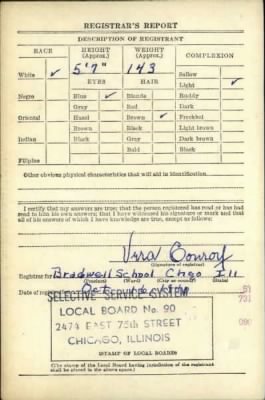 REGISTRAR'S REPORT
DESCRIPTION OF REGISTRANT
RACE HEIGHT (Approx.) WEIGHT (Approx.) COMPLEXION
White ✓ 5'7" 143 Sallow
EYES HAIR Light ✓
Negro Blue ✓ Blonde Ruddy
Gray Red Dark
Oriental Hazel Brown ✓ Freckled
Brown Black Light brown
Indian Black Gray Dark brown
Bald Black
Filipino
Other obvious physical characteristics that will aid in identification
I certify that my answers are true; that the person registered has read or has had
read to him his own answers; that I have witnessed his signature or mark and that
all of his answers of which I have knowledge are true, except as follows:
Vera Conroy
(Signature of registrar)
Registrar for Bradwell School Chgo Ill
(Precinct) (Ward) (City or county) (State)
Date of registration Oct. 16
SELECTIVE SERVICE SYSTEM
LOCAL BOARD No. 90
2474 EAST 75th STREET
CHICAGO, ILLINOIS
(STAMP OF LOCAL BOARD)
(The stamp of the Local Board having jurisdiction of the registrant
shall be placed in the above space.)